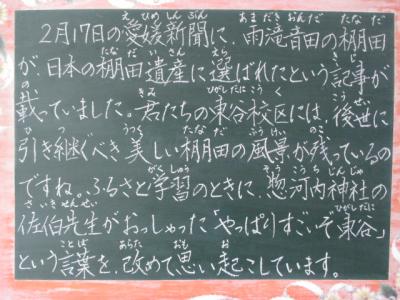 2月17日の愛媛新聞に、雨滝音田の棚田
が、日本の棚田遺産に選ばれたという記事が
載っていました。君たちの東谷校区には、後世に
引き継ぐべき美しい棚田の風景が残っているの
ですね。ふるさと学習のときに、惣河内神社の
佐伯先生がおっしゃった「やっぱりすごいぞ東谷」
という言葉を、改めて思い起こしています。